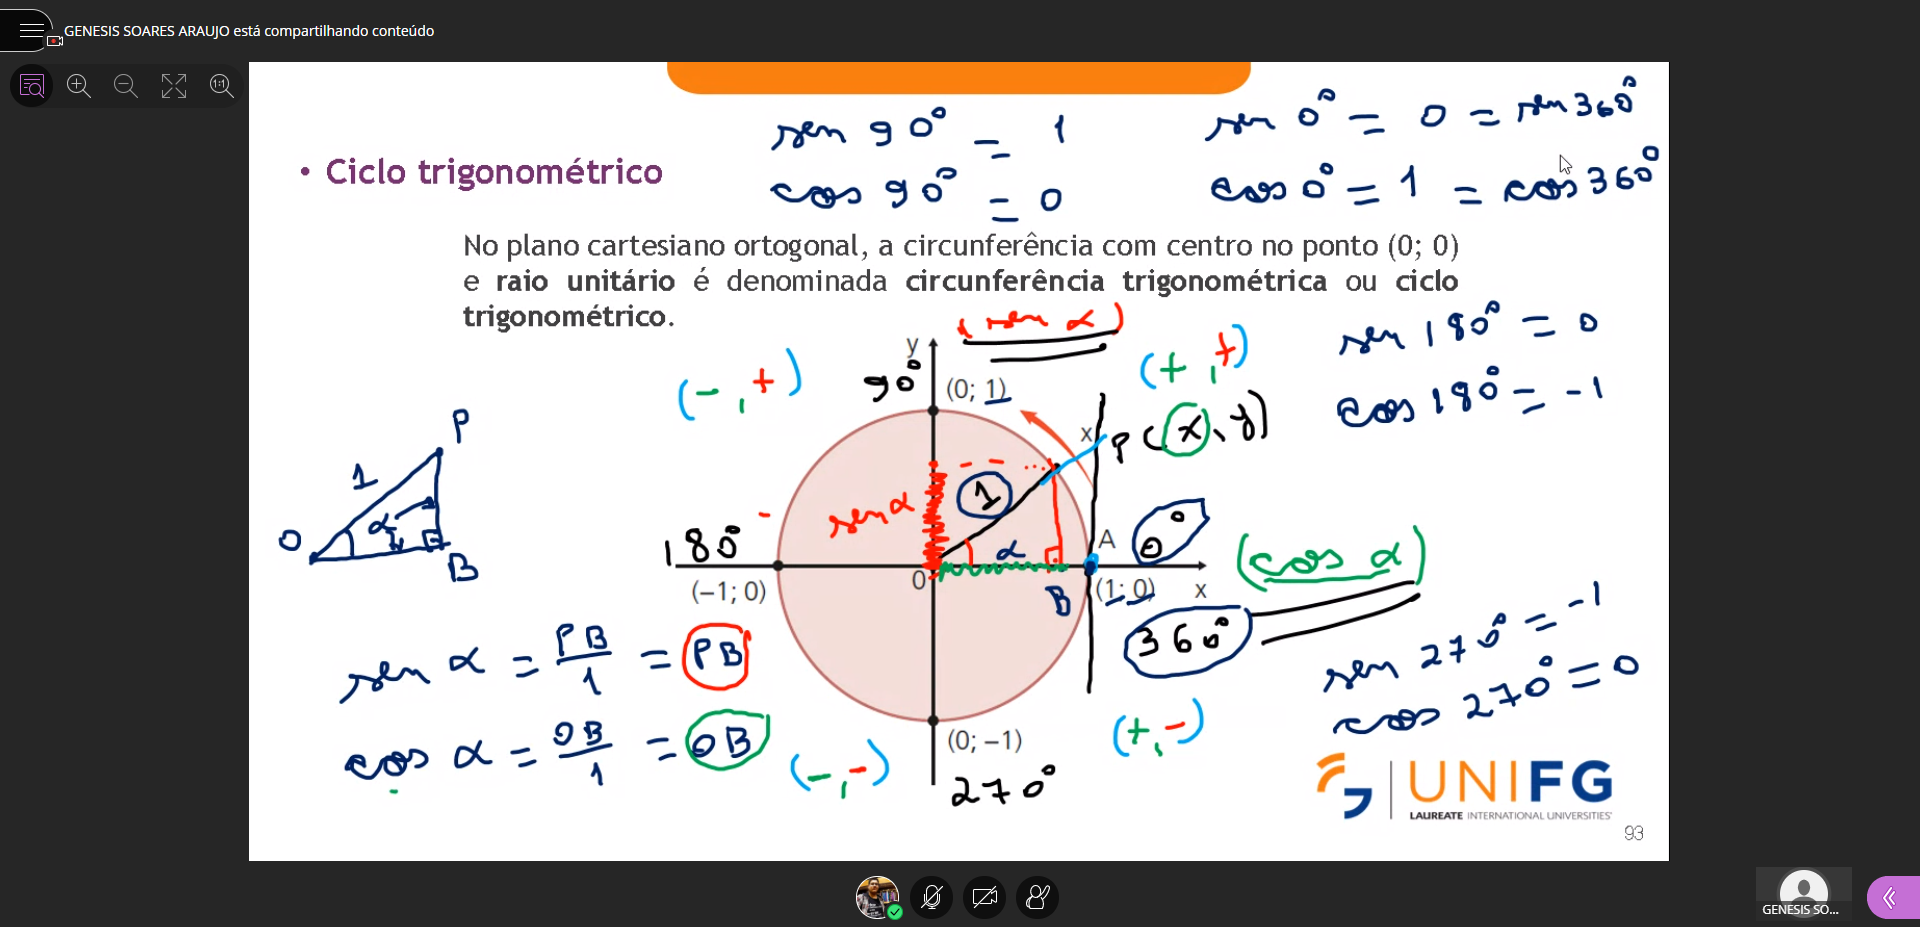 GENESIS SOARES ARAUJO está compartilhando conteúdo
1:1
sen 90° = 1
cos 90° = 0
sen 0° = 0 = sen 360°
cos 0° = 1 = cos 360°
• Ciclo trigonométrico
No plano cartesiano ortogonal, a circunferência com centro no ponto (0; 0)
e raio unitário é denominada circunferência trigonométrica ou ciclo
trigonométrico.
(sen α)
sen 180° = 0
cos 180° = -1
(-, +)
(+, +)
y
90°
(0; 1)
x
P(x, y)
P
1
α
O
B
1
sen α
180°
α
A
0°
(cos α)
(−1; 0)
0
B
(1; 0)
x
360°
sen α = PB/1 = PB
cos α = OB/1 = OB
sen 270° = -1
cos 270° = 0
(-, -)
(+, -)
(0; −1)
270°
UNIFG
LAUREATE INTERNATIONAL UNIVERSITIES
93
GENESIS SO...